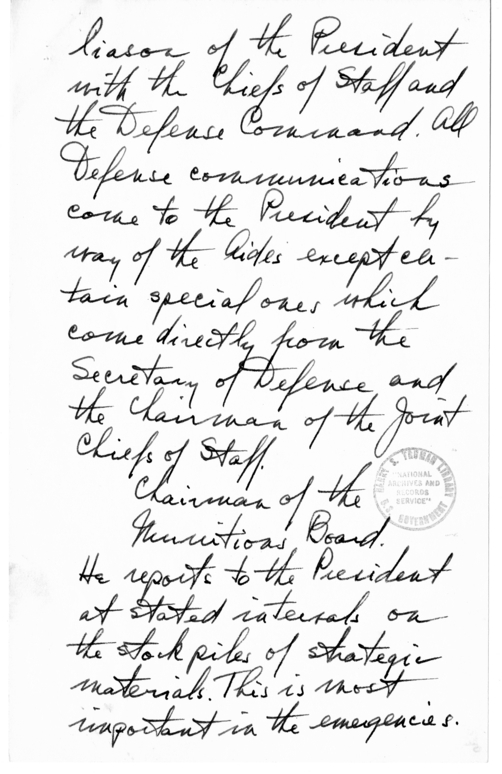 liason of the President
with the Chiefs of Staff and
the Defense Command. All
Defense communications
come to the President by
way of the Aides except cer-
tain special ones which
come directly from the
Secretary of Defense and
the Chairman of the Joint
Chiefs of Staff.
Chairman of the
Munitions Board.
He reports to the President
at stated intervals on
the stock piles of strategic
materials. This is most
important in the emergencies.
HARRY S. TRUMAN LIBRARY
"NATIONAL
ARCHIVES AND
RECORDS
SERVICE"
U.S. GOVERNMENT